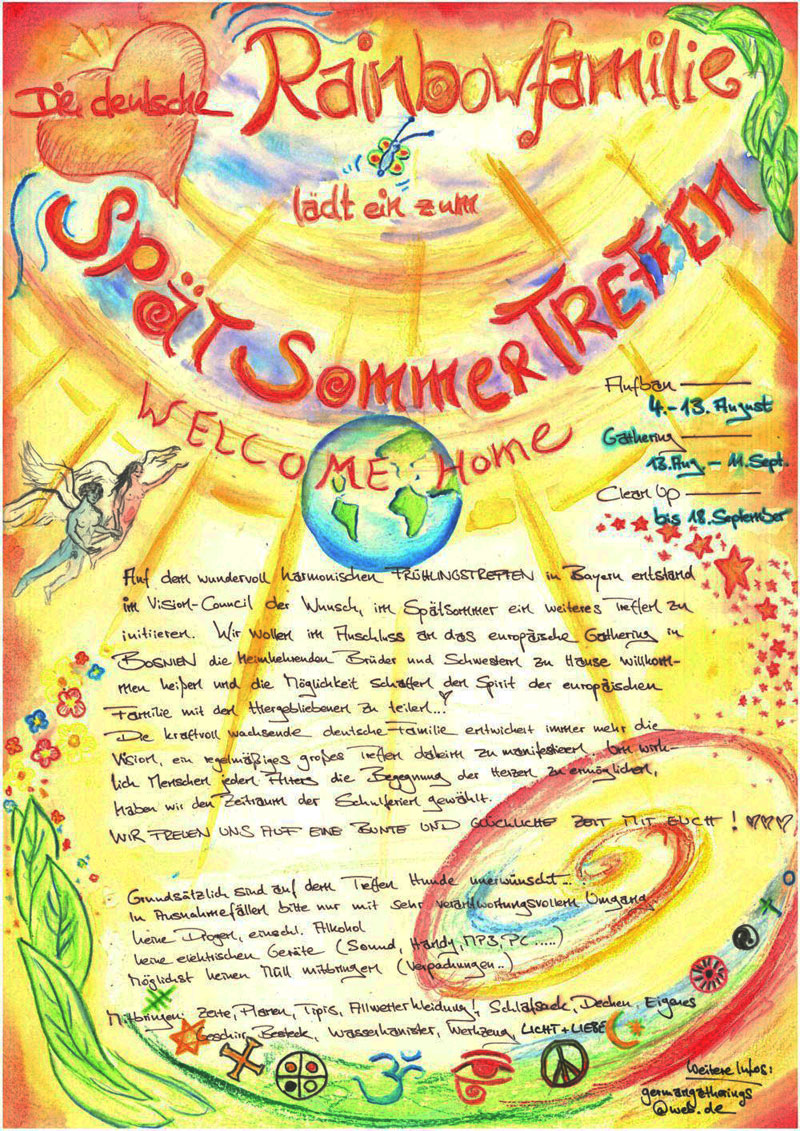 Die deutsche
Rainbowfamilie
lädt ein zum
SPÄTSOMMERTREFFEN
WELCOME HOME
Aufbau
4.-13. August
Gathering
13. Aug. - 11. Sept.
Clean Up
bis 18. September
Auf dem wundervoll harmonischen FRÜHLINGSTREFFEN in Bayern entstand
im Vision-Council der Wunsch, im Spätsommer ein weiteres Treffen zu
initiieren. Wir wollen im Anschluss an das europäische Gathering in
BOSNIEN die heimkehrenden Brüder und Schwestern zu Hause willkom-
men heißen und die Möglichkeit schaffen den Spirit der europäischen
Familie mit den Hiergebliebenen zu teilen...!
Die kraftvoll wachsende deutsche Familie entwickelt immer mehr die
Vision, ein regelmäßiges großes Treffen daheim zu manifestieren. Um wirk-
lich Menschen jeden Alters die Begegnung der Herzen zu ermöglichen,
haben wir den Zeitraum der Schulferien gewählt.
WIR FREUEN UNS AUF EINE BUNTE UND GLÜCKLICHE ZEIT MIT EUCH! ♡♡♡
Grundsätzlich sind auf dem Treffen Hunde unerwünscht...
in Ausnahmefällen bitte nur mit sehr verantwortungsvollem Umgang,
keine Drogen, einschl. Alkohol
keine elektrischen Geräte (Sound, Handy, MP3, PC .....)
Möglichst keinen Müll mitbringen (Verpackungen..)
Mitbringen: Zelte, Planen, Tipis, Allwetterkleidung!, Schlafsack, Decken, Eigenes
Geschirr, Besteck, Wasserkanister, Werkzeug, LICHT + LIEBE
Weitere Infos:
germangatherings
@web.de